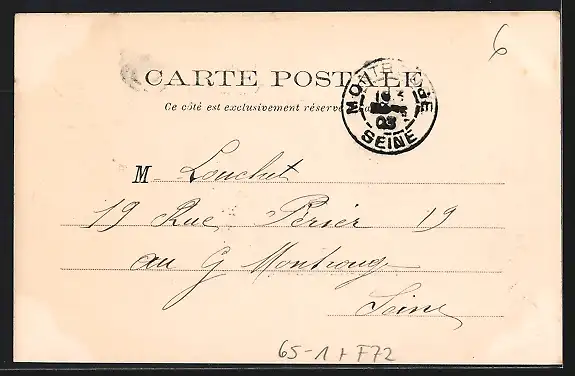 6
CARTE POSTALE
Ce côté est exclusivement réservé
MONTROUGE
03
SEINE
M Louchet
19 Rue Périer 19
au G Montrouge
Seine
65-1 + F72